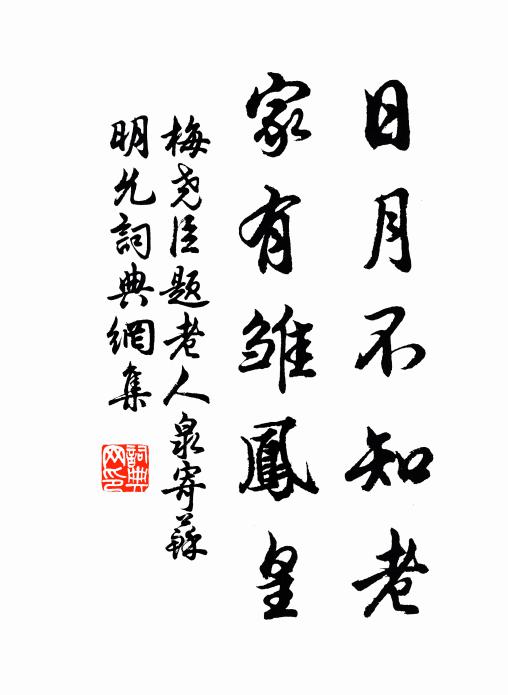 日月不知老
家有雏鳳皇
梅尧臣题老人泉寄蘇
明允詞典網集
詞典
网印